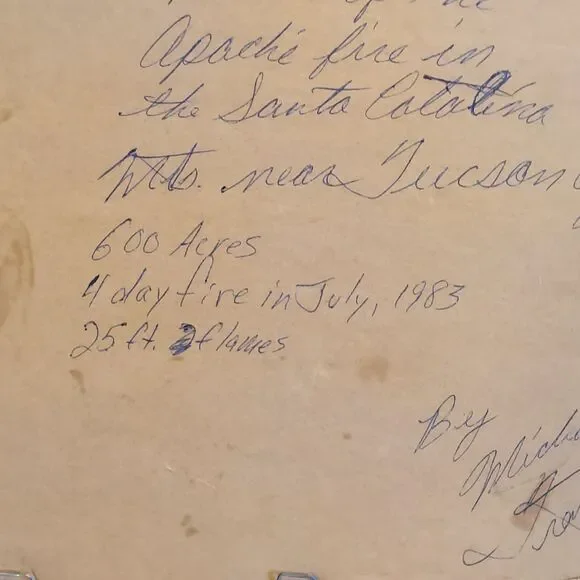 Apache fire in
the Santa Catalina
Mts. near Tucson
600 Acres
4 day fire in July, 1983
25 ft. flames
By